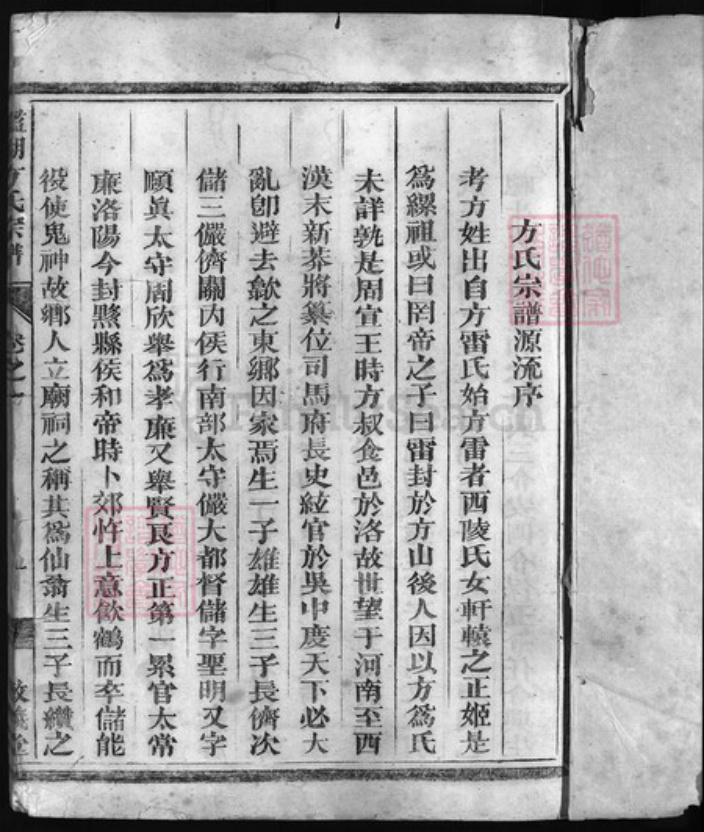 方氏宗譜源流序
考方姓出自方雷氏始方雷者西陵氏女軒轅之正姬是
爲縲祖或曰罔帝之子曰雷封於方山後人因以方爲氏
未詳孰是周宣王時方叔食邑於洛故世望于河南至西
漢末新莽將纂位司馬府長史紘官於吳中度天下必大
亂卽避去歙之東鄉因家焉生一子雄雄生三子長儕次
儲三儼儕關內侯行南部太守儼大都督儲字聖明又字
頤眞太守周欣舉爲孝廉又舉賢良方正第一累官太常
廉洛陽令封黟縣侯和帝時卜郊忤上意飲鶴而卒儲能
役使鬼神故鄉人立廟祠之稱其爲仙翁生三子長纘之
鑑湖方氏宗譜
卷之
FamilySearch